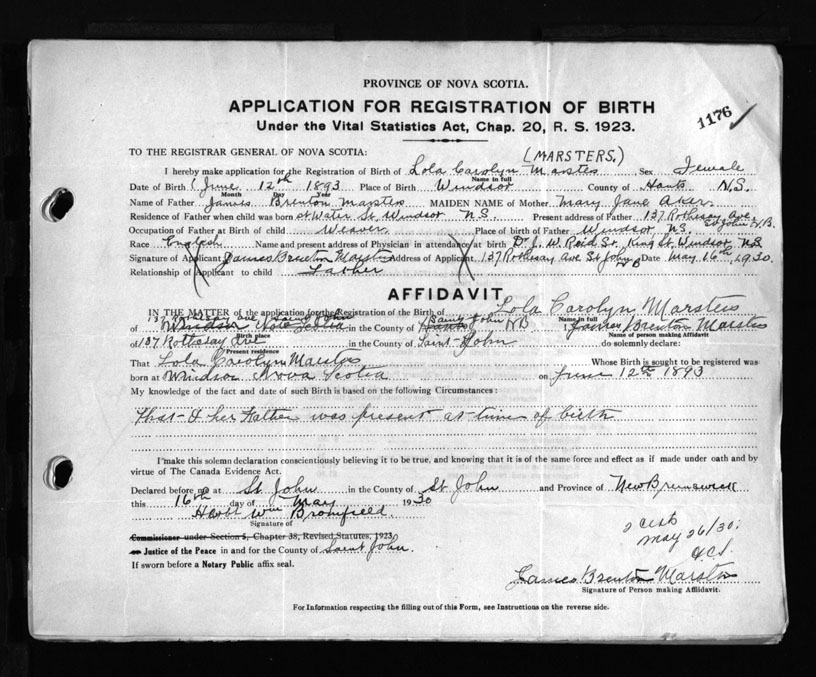 PROVINCE OF NOVA SCOTIA.
APPLICATION FOR REGISTRATION OF BIRTH
1176
Under the Vital Statistics Act, Chap. 20, R. S. 1923.
TO THE REGISTRAR GENERAL OF NOVA SCOTIA:
(MARSTERS.)
I hereby make application for the Registration of Birth of Lola Carolyn Marsters Sex Female
Name in full
Date of Birth June 12th 1893 Place of Birth Windsor County of Hants N.S.
Month Day Year
Name of Father James Brenton Marsters MAIDEN NAME of Mother Mary Jane Aker.
Residence of Father when child was born at Water St. Windsor N.S. Present address of Father 137 Rothesay Ave. St John N.B.
Occupation of Father at Birth of child Weaver Place of birth of Father Windsor, N.S.
Race English Name and present address of Physician in attendance at birth Dr J. W. Reid Sr. King St. Windsor N.S.
Signature of Applicant James Brenton Marsters Address of Applicant 137 Rothesay Ave St John NB Date May 16th, 1930.
Relationship of Applicant to child Father
AFFIDAVIT
IN THE MATTER of the application for the Registration of the Birth of Lola Carolyn Marsters
Name in full
137 Rothesay ave Saint John
of Windsor Nova Scotia in the County of Hants Saint John NB I James Brenton Marsters
Birth place Name of person making Affidavit
of 137 Rothesay Ave in the County of Saint John do solemnly declare:
Present residence
That Lola Carolyn Marsters Whose Birth is sought to be registered was
born at Windsor Nova Scotia on June 12th 1893
My knowledge of the fact and date of such Birth is based on the following Circumstances:
That I her Father was present at time of birth
I make this solemn declaration conscientiously believing it to be true, and knowing that it is of the same force and effect as if made under oath and by
virtue of The Canada Evidence Act.
Declared before me at St John in the County of St John and Province of New Brunswick
this 16th day of May 1930
Wm Bromfield
Signature of
Commissioner under Section 5, Chapter 38, Revised Statutes, 1923
or Justice of the Peace in and for the County of Saint John.
If sworn before a Notary Public affix seal.
2 certs
May 26/30.
James Brenton Marsters
Signature of Person making Affidavit.
For Information respecting the filling out of this Form, see Instructions on the reverse side.